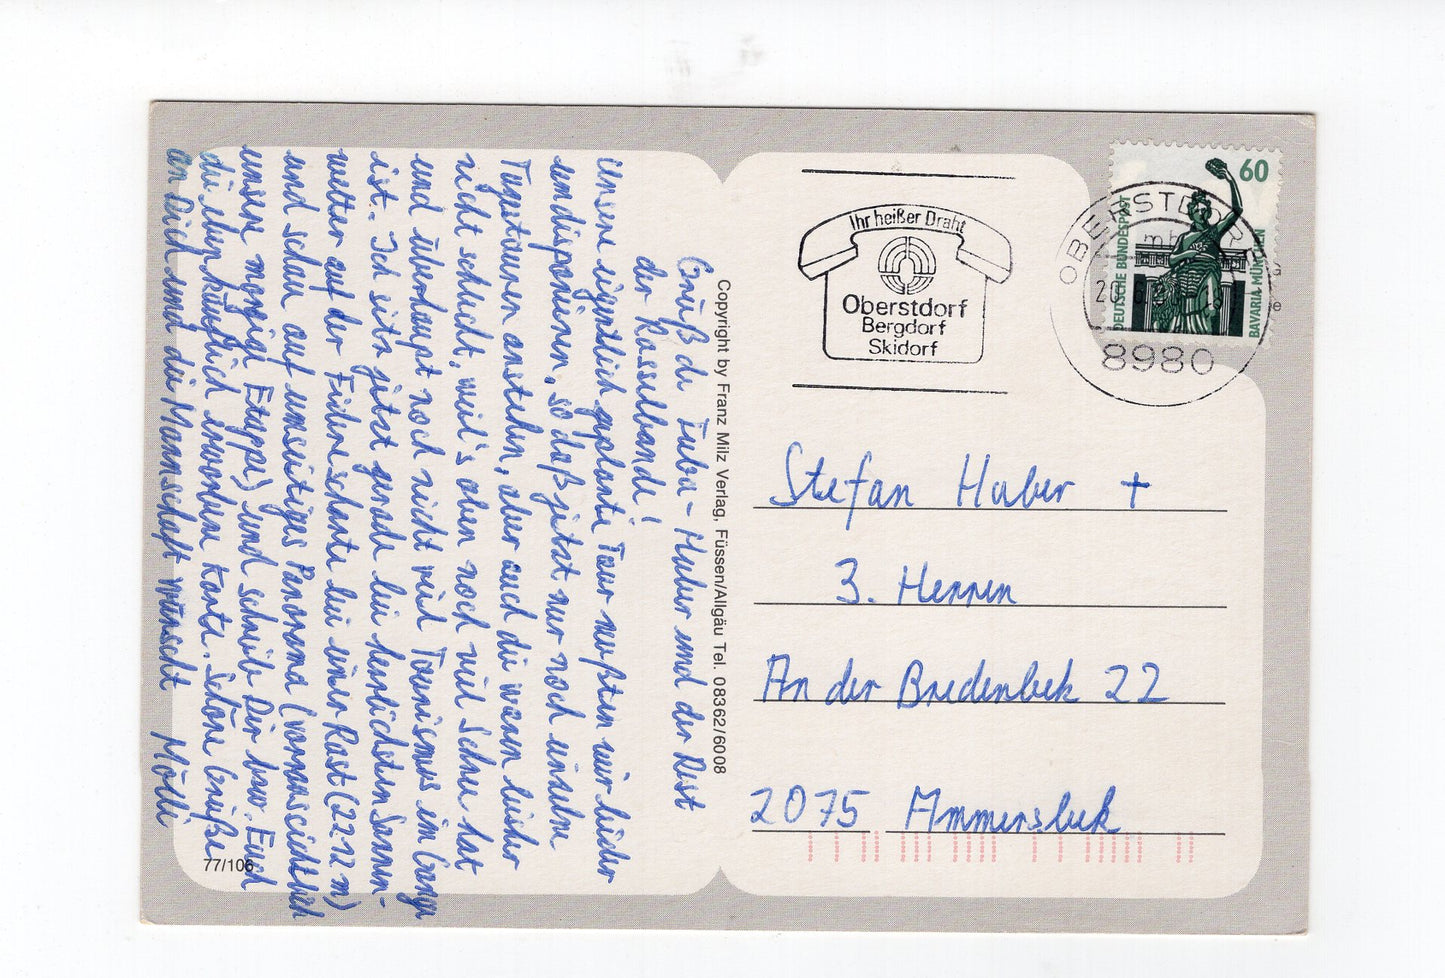 Grüß di Tuba-Huber und der Rest
der Rasselbande!
Unsere eigentlich geplante Tour mußten wir leider
umdisponieren, so daß jetzt nur noch einzelne
Tagestouren anstehen, aber auch die waren bisher
nicht schlecht, weil's oben noch viel Schnee hat
und überhaupt noch nicht viel Tourismus im Gange
ist. Ich sitz jetzt gerade bei herrlichsten Sonnen-
wetter auf der Fiderescharte bei einer Rast (2212 m)
und schau auf umseitiges Panorama (voraussichtlich
unsere morgige Etappe) und schreib Dir bzw. Euch
die eben käuflich erworbene Karte. Schöne Grüße
an Dich und die Mannschaft wünscht Mölli
77/106
Copyright by Franz Milz Verlag, Füssen/Allgäu Tel. 08362/6008
Ihr heißer Draht
Oberstdorf
Bergdorf
Skidorf
60
DEUTSCHE BUNDESPOST
BAVARIA MÜNCHEN
OBERSTDORF
8980
Stefan Huber +
3. Herren
An der Bredenbek 22
2075 Ammersbek